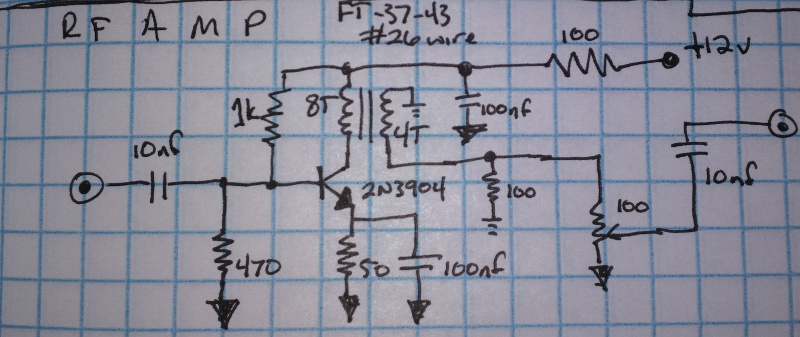 RF AMP
FT-37-43
#26 wire
100
+12v
1k
8T
4T
100nf
10nf
2N3904
100
100
10nf
470
50
100nf